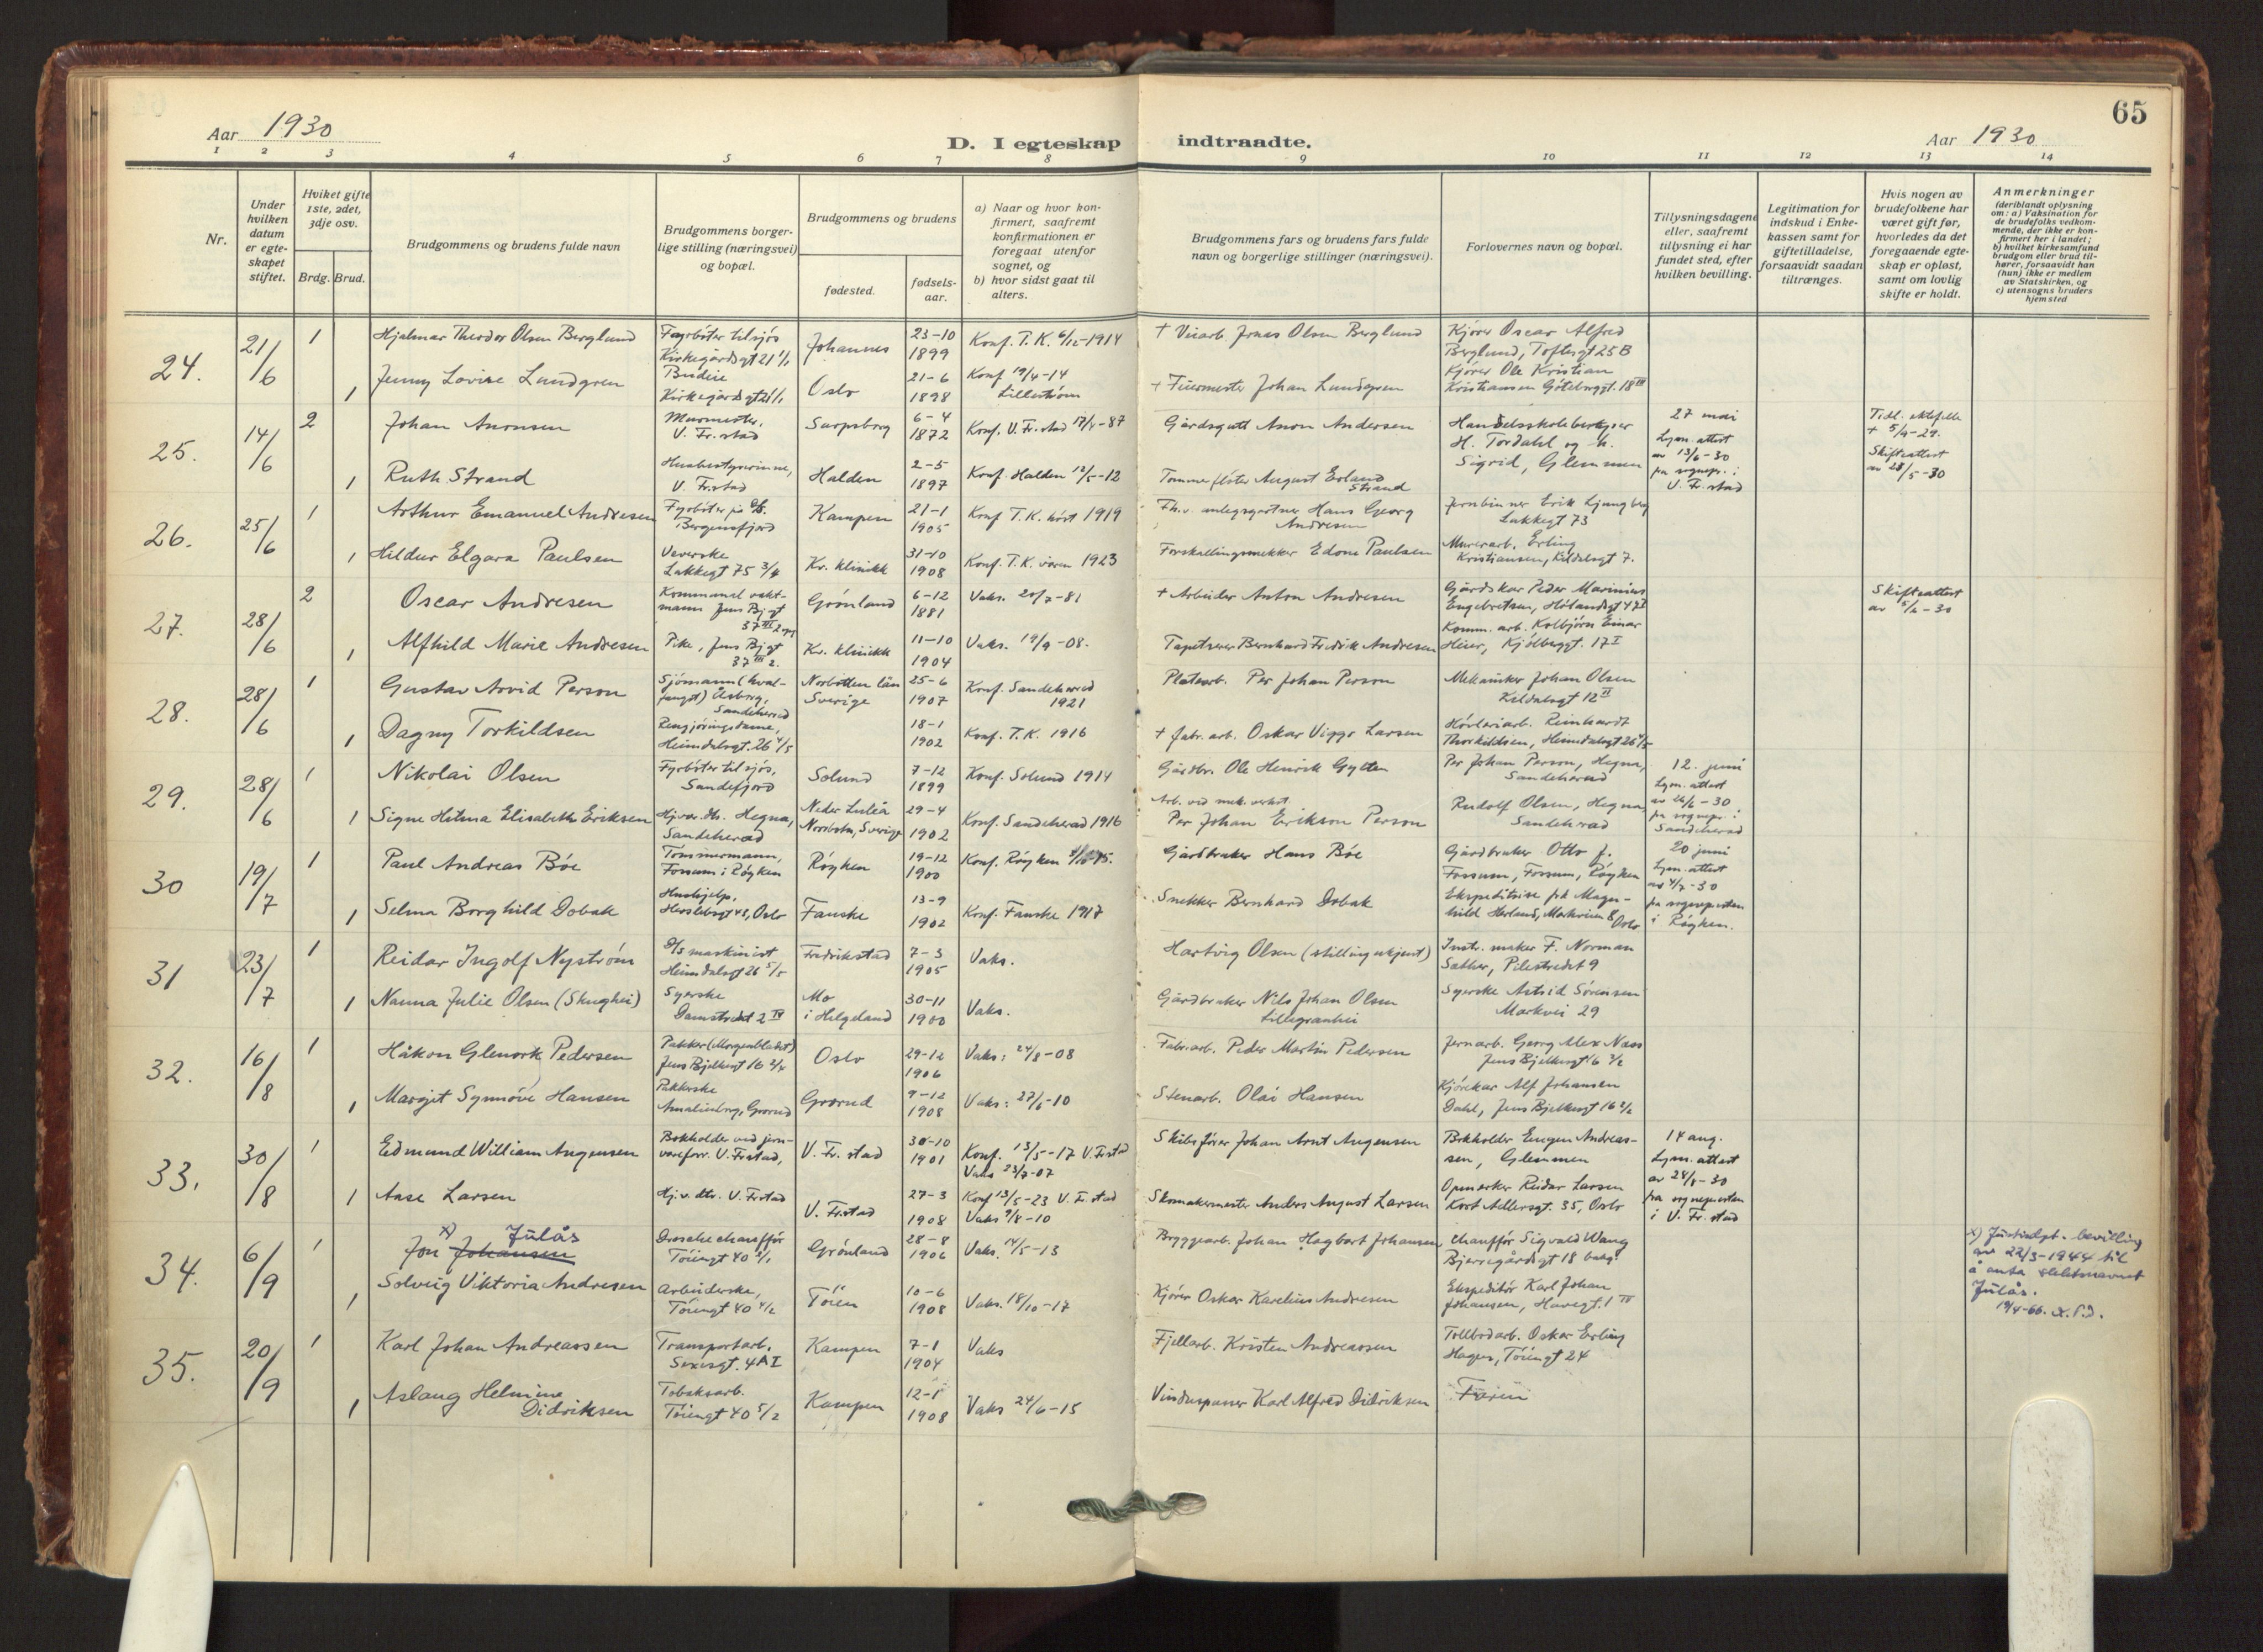 65
Aar 1930
D. I egteskap indtraadte.
Aar 1930
1 2 3 4 5 6 7 8 9 10 11 12 13 14
Nr.
Under hvilken datum er egteskapet stiftet.
Hviket gifte 1ste, 2det, 3dje osv.
Brdg. Brud.
Brudgommens og brudens fulde navn
Brudgommens borgerlige stilling (næringsvei) og bopæl.
Brudgommens og brudens
fødested.
fødselsaar.
a) Naar og hvor konfirmert, saafremt konfirmationen er foregaat utenfor sognet, og
b) hvor sidst gaat til alters.
Brudgommens fars og brudens fars fulde navn og borgerlige stillinger (næringsvei).
Forlovernes navn og bopæl.
Tillysningsdagene eller, saafremt tillysning ei har fundet sted, efter hvilken bevilling.
Legitimation for indskud i Enkekassen samt for giftetilladelse, forsaavidt saadan tiltrænges.
Hvis nogen av brudefolkene har været gift før, hvorledes da det foregaaende egteskap er opløst, samt om lovlig skifte er holdt.
Anmerkninger (deriblandt oplysning om: a) Vaksination for de brudefolks vedkommende, der ikke er konfirmert her i landet; b) hvilket kirkesamfund brudgom eller brud tilhører, forsaavidt han (hun) ikke er medlem av Statskirken, og c) utensogns bruders hjemsted
24. 21/6 1 Hjalmar Theodor Olsen Berglund Fyrbøter tilsjøs Kirkegårdsgt 21 1/1 Johannes 23-10 1899 Konf. T.K. 6/12-1914 + Olsen Berglund Kjører Oscar Alfred Berglund, Toftesgt 25 B
1 Jenny Lovise Lundgren Budeie Kirkegårdsgt 21 1/1 Oslo 21-6 1898 Konf 19/4-14 Lillestrøm + Johan Lundgren Kjører Ole Kristian Kristiansen Göteborggt. 18 III
25. 14/6 2 Johan Aronsen Murmester, V. Fr.stad Sarpsborg 6-4 1872 Konf. V. Fr.stad 17/4-87 Gårdsgutt Aron Andersen Handelsskolebestyrer H. Tordahl og h. Sigrid, Glemmen 27 mai Lysn. attest av 13/6-30 fra sognepr. i V. Fr.stad Tidl. ektefelle + 5/9-29. Skifteattest av 28/5-30
1 Ruth Strand Husbestyrerinne, V. Fr.stad Halden 2-5 1897 Konf. Halden 12/5-12 Tømmerfløter August Erland Strand
26. 25/6 1 Arthur Emanuel Andresen Fyrbøter på D/S. Bergensfjord Kampen 21-1 1905 Konf T.K. høst 1919 Fh.v. anlegsgartner Hans Georg Andresen Jernbinner Erik Ljungberg Lakkegt 73
1 Hildur Elgara Paulsen Veverske Lakkegt 75 3/4 Kv. klinikk 31-10 1908 Konf. T.K. våren 1923 Forskallingssnekker Edon Paulsen Murerarb. Erling Kristiansen, Kildalsgt 7.
27. 28/6 2 Oscar Andresen Kommunal vaktmann Jens Bj.gt 37 III 2 opg Grønland 6-12 1881 Vaks. 20/7-81 + Arbeider Anton Andresen Gårdskar Peder Marinius Engebretsen, Hølandsgt 4 Skifteattest av -30
1 Alfhild Marie Andresen Pike, Jens Bj.gt 37 III 2. Kv. klinikk 11-10 1904 Vaks. 19/9-08. Tapetserer Bernhard Fredrik Andresen Komm. arb. Kolbjørn Einar Heier, Kjølberggt. 17 I
28. 28/6 1 Gustav Arvid Person Sjømann (hvalfangst) Åsborg, Sandeherred Norbotten län Sverige 25-6 1907 Konf. Sandeherred 1921 Platearb. Per Johan Person Mekaniker Johan Olsen Kildalsgt 12 II
1 Dagny Torkildsen Rengjøringsdame, Heimdalsgt. 26 4/5 18-1 1902 Konf. T.K. 1916 + fabr. arb. Oskar Viggo Larsen Høvleriarb. Reinhardt Thorkildsen, Heimdalsgt 26 4/5
29. 28/6 1 Nikolai Olsen Fyrbøter til sjøs, Sandefjord Solund 7-12 1899 Konf. Solund 1914 Gårdbr. Ole Henrik Gytten Per Johan Person, Hegna, Sandeherad 12. juni Lysn. attest av 26/6-30 fra sognepr. i Sandeherad
1 Signe Hilma Elisabeth Eriksen Hj.vær. dtr. Hegna, Sandeherad Neder Luleå Norrbotn, Sverige 29-4 1902 Konf. Sandeherad 1916 Arb. ved mek. verkst. Per Johan Erikson Person Rudolf Olsen, Hegna, Sandeherad
30 19/7 1 Paul Andreas Bøe Tømmermann, Fossum i Røyken Røyken 19-12 1900 Konf. Røyken Gårdbruker Hans Bøe Gårdbruker Otto J. Fossum, Fossum, Røyken 20 juni Lysn. attest av 4/7-30 fra sognepresten i Røyken.
1 Selma Borghild Dobak Hushjelp, Herslebsgt 43, Oslo Fauske 13-9 1902 Konf. Fauske 1917 Snekker Bernhard Dobak Ekspeditrise frk Magnhild Horland, Markveien 8, Oslo
31 23/7 1 Reidar Ingolf Nystrøm D/s maskinist Heimdalsgt 26 5/5 Fredrikstad 7-3 1905 Vaks. Hartvig Olsen (stilling ukjent) Instr. maker F. Norman Sæther, Pilestredet 9
1 Nanna Julie Olsen (Skughei) Syerske Damstredet 2 IV Mo i Helgeland 30-11 1900 Vaks. Gårdbruker Nils Johan Olsen Lillegranhei Syerske Astrid Sørensen Markvei 29
32. 16/8 1 Håkon Glenork Pedersen Pakker (Morgenbladet) Jens Bjelkesgt 16 2/2 Oslo 29-12 1906 Vaks: 24/8-08 Fabr.arb. Peder Martin Pedersen Jernarb. Georg Alex Næss Jens Bjelkesgt 16 3/2
1 Margit Synnøve Hansen Pakkerske Amalienborg, Grorud Grorud 9-12 1908 Vaks: 27/6-10 Stenarb. Olai Hansen Kjørekar Alf Johansen Dahl, Jens Bjelkesgt 16 2/2
33. 30/8 1 Edmund William Augensen Bokholder ved jernvareforr. V. Fr.stad, V. Fr. stad 30-10 1901 Konf. 13/5-17 V.Fr.stad Vaks 23/7-07 Skibsfører Johan Arnt Augensen Bokholder Eugen Andreassen, Glemmen 14 aug. Lysn. attest av 28/8-30 fra sognepresten i V. Fr. stad
1 Aase Larsen Hj.v. dtr. V. Fr.stad V. Fr.stad 27-3 1908 Konf 13/5-23 V. Fr.stad Vaks 9/8-10 Skomakermester Anders August Larsen Opmerker Reidar Larsen Kort Adlersgt. 35, Oslo
34. 6/9 1 x) Jon Johansen Julås Droschechauffør Tøiengt 40 4/2 Grønland 28-8 1906 Vaks. 14/5-13 Bryggearb. Johan Hagbart Johansen Chauffør Sigvald Wang Bjerregårdsgt 18 bakg. x) Justisdept. bevilling av 22/3-1944 til å anta slektsnavnet Julås. 19/4-66.
1 Solveig Viktoria Andresen Arbeiderske, Tøiengt 40 4/2 Tøien 10-6 1908 Vaks. 18/10-17 Kjører Oskar Karelius Andresen Ekspeditør Karl Johan Johansen, Havegt. 1 IV
35. 20/9 1 Karl Johan Andreassen Transportarb. Sexesgt. 4A I Kampen 7-1 1904 Vaks Fjellarb. Kristen Andreassen Tollbodarb. Oskar Erling Hagen, Tøiengt 24
1 Aslaug Helmine Didriksen Tobaksarb. Tøiengt 40 5/2 Kampen 12-1 1908 Vaks 24/6-15 Vinduspusser Karl Alfred Didriksen Faren